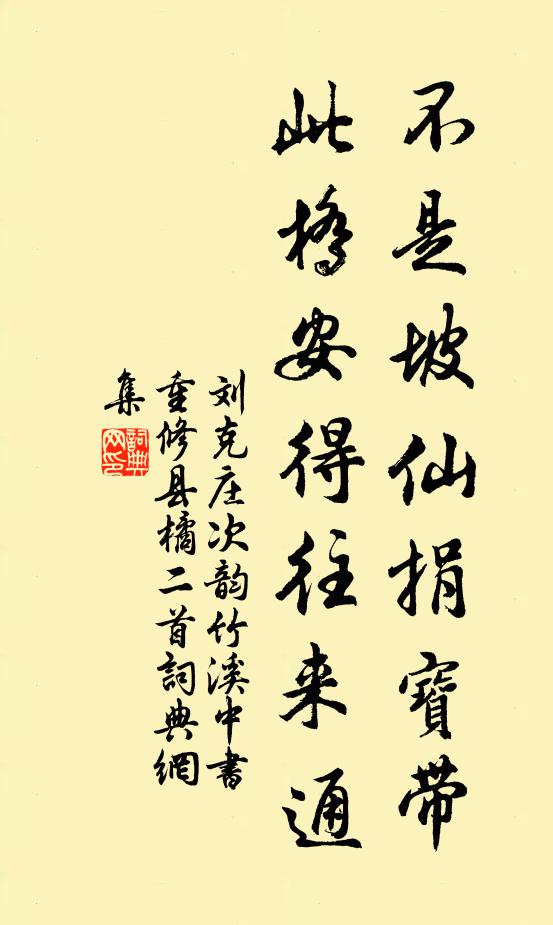 不是坡仙捐寶帶
此橋安得往来通
刘克庄次韵竹溪中書
重修县橘二首詞典網
集
詞典
网印